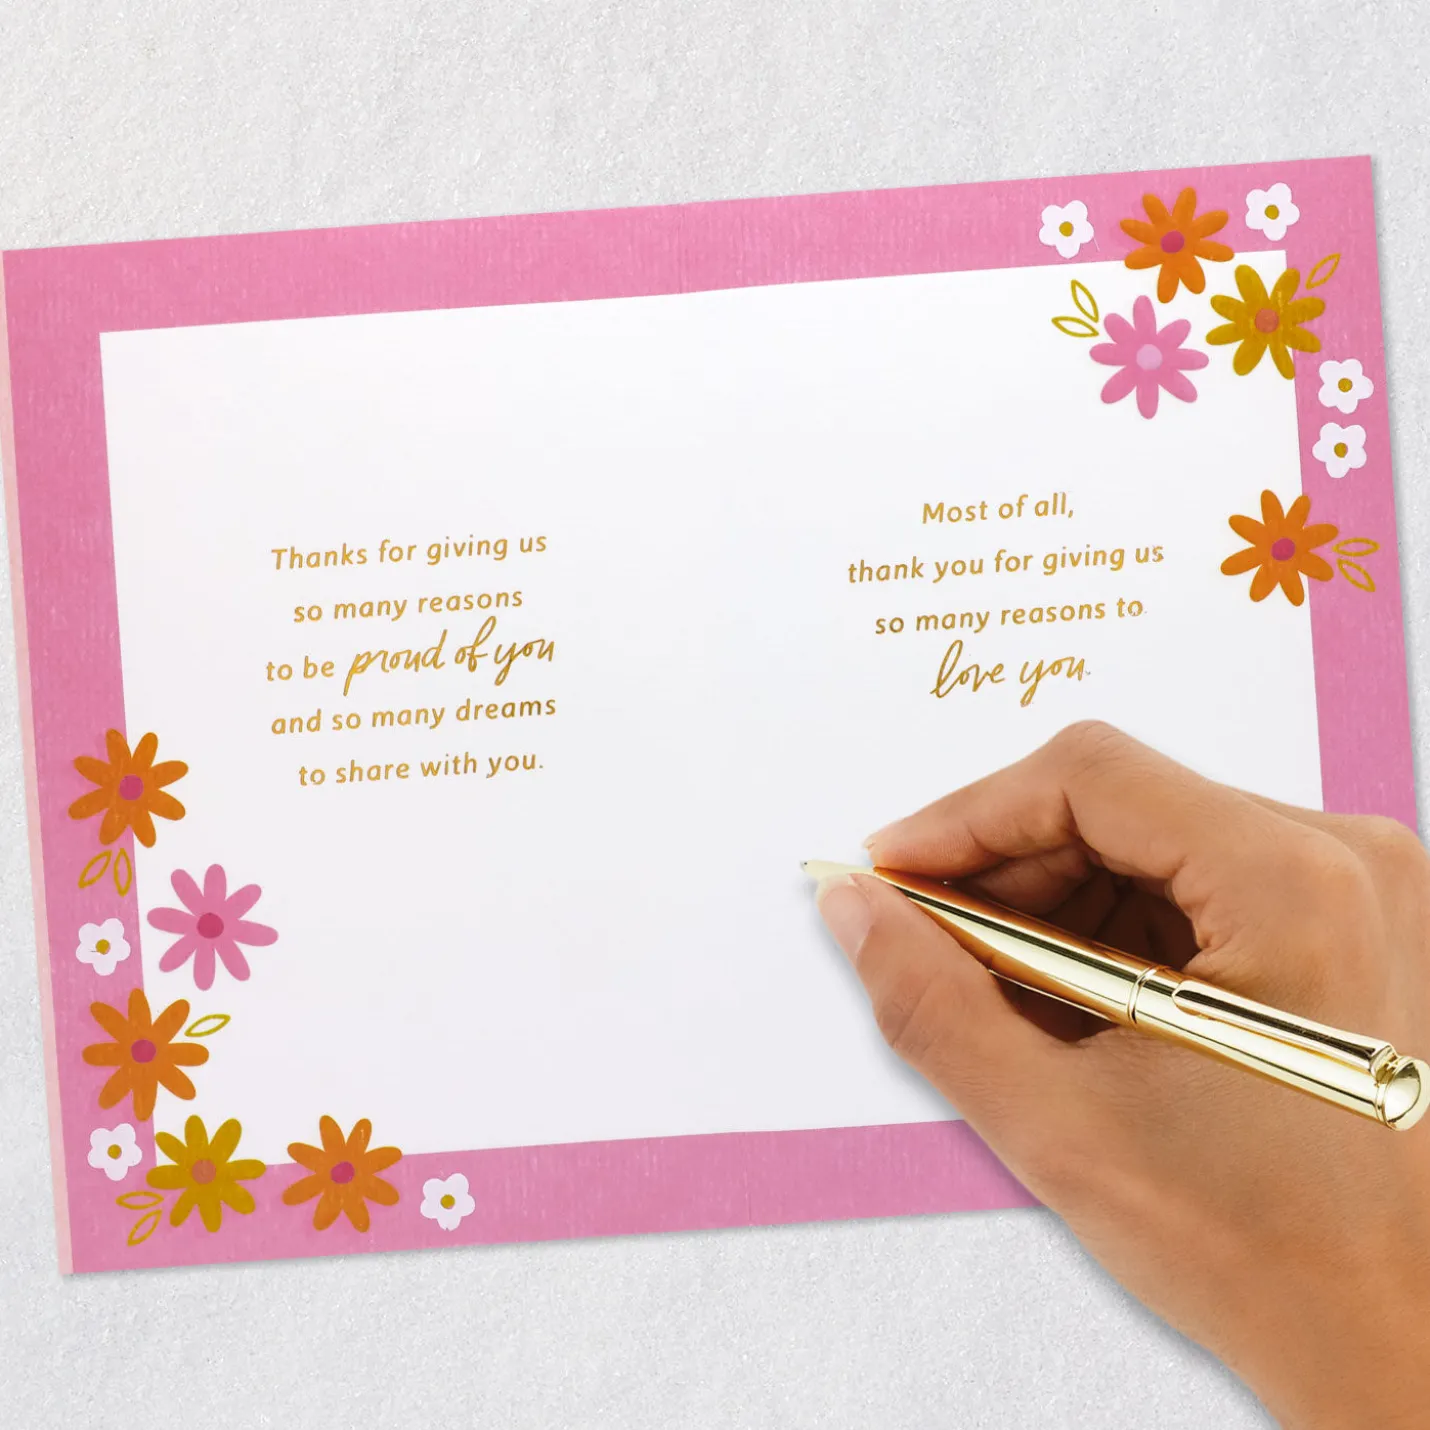 Thanks for giving us
so many reasons
to be proud of you
and so many dreams
to share with you.
Most of all,
thank you for giving us
so many reasons to
love you.